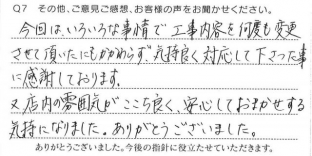 Q7 その他、ご意見ご感想、お客様の声をお聞かせください。
今回は、いろいろな事情で工事内容を何度も変更
させて頂いたにもかかわらず、気持良く対応して下さった事
に感謝しております。
又店内の雰囲気がここち良く、安心しておまかせする
気持になりました。ありがとうございました。
ありがとうございました。今後の指針に役立たせていただきます。